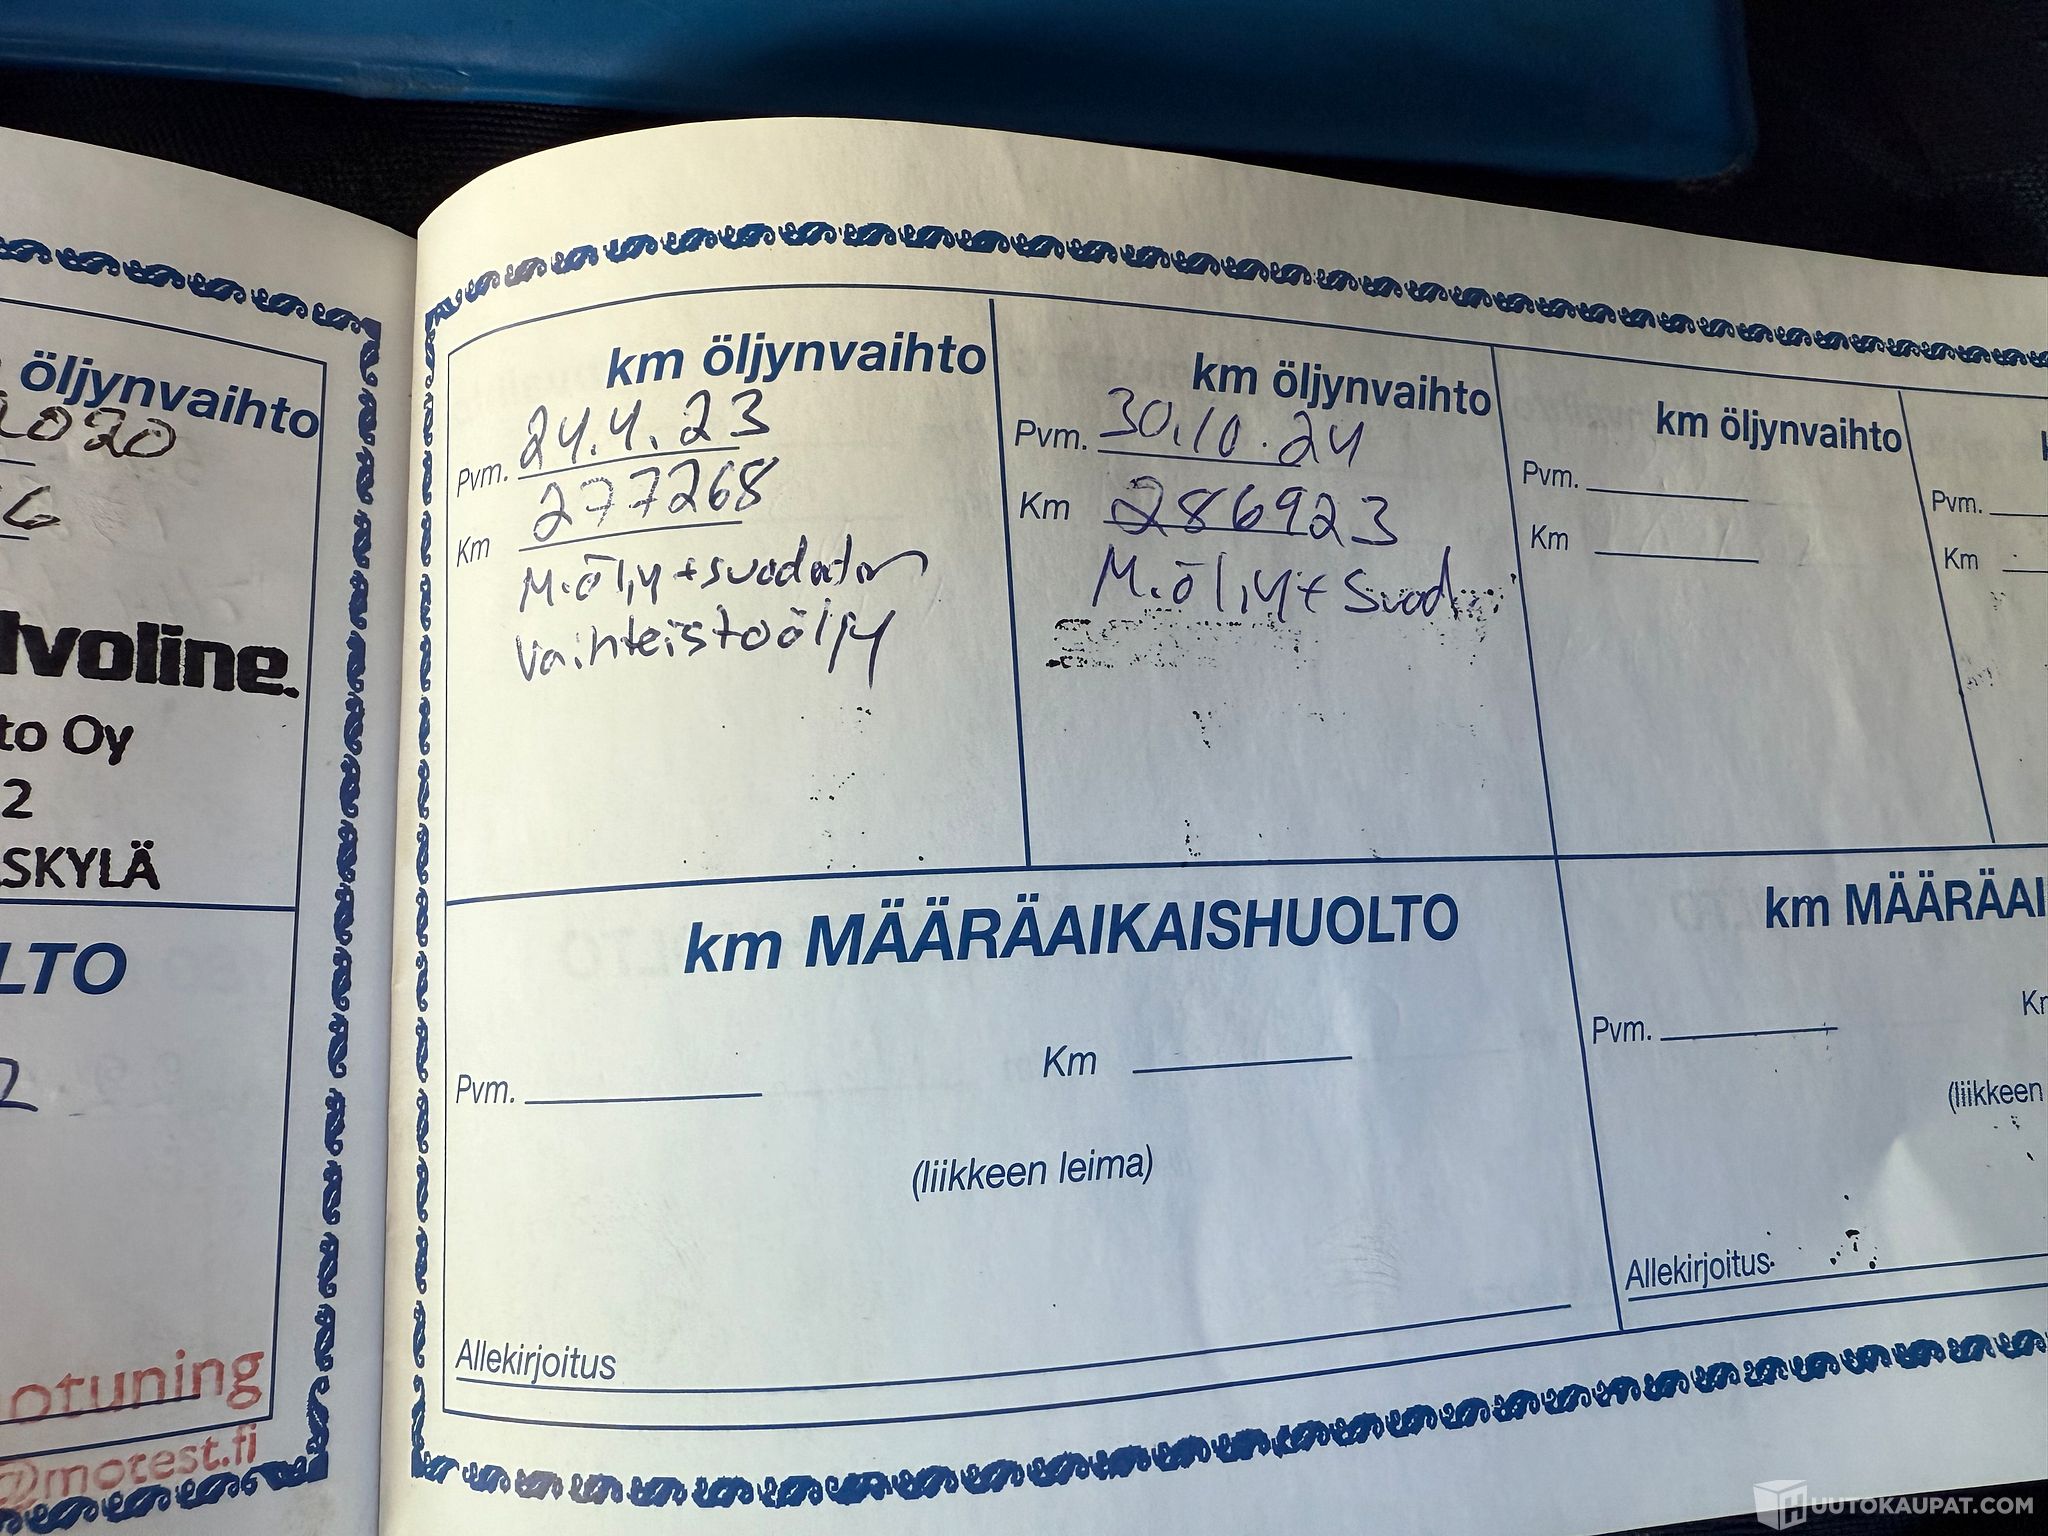 öljynvaihto
2020
lvoline.
to Oy
2
SKYLÄ
LTO
2
otuning
@motest.fi
km öljynvaihto
Pvm. 24.4.23
Km 277268
M.öljy + suodatin
vaihteistoöljy
km öljynvaihto
Pvm. 30.10.24
Km 286923
M.öljy + Suod
km öljynvaihto
Pvm.
Km
Pvm.
Km
km MÄÄRÄAIKAISHUOLTO
Pvm.
Km
(liikkeen leima)
Allekirjoitus
km MÄÄRÄAI
Pvm.
(liikkeen
Allekirjoitus
HUUTOKAUPAT.COM